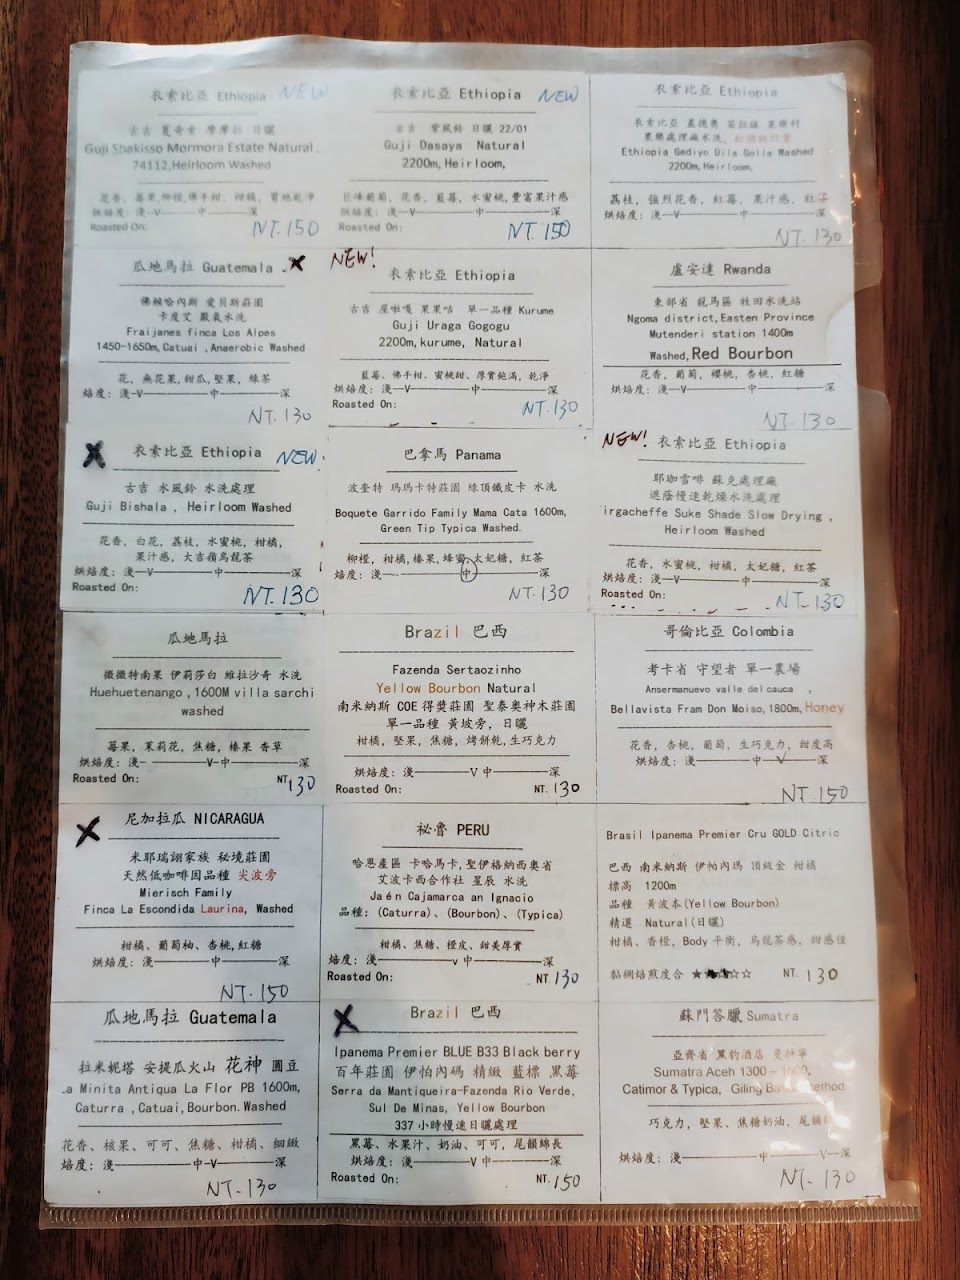 衣索比亞 Ethiopia NEW
古吉 夏奇索 摩摩拉 日曬
Guji Shakisso Mormora Estate Natural ,
74112,Heirloom Washed
花香, 莓果,柳橙,佛手柑, 柑橘, 質地乾淨
烘焙度: 淺—V————中————深
Roasted On:
NT.150
衣索比亞 Ethiopia NEW
古吉 紫風鈴 日曬 22/01
Guji Dasaya Natural
2200m,Heirloom,
巨峰葡萄, 花香, 藍莓, 水蜜桃,豐富果汁感
烘焙度: 淺—V————中————深
Roasted On:
NT.150
衣索比亞 Ethiopia
衣索比亞 蓋德奧 笛拉鎮 果樂村
果樂處理廠水洗,
Ethiopia Gediyo Dila Golla Washed
2200m,Heirloom,
荔枝, 強烈花香, 紅莓, 果汁感, 紅茶
烘焙度: 淺—V————中————深
NT.130
瓜地馬拉 Guatemala
佛賴哈內斯 愛貝斯莊園
卡度艾 厭氧水洗
Fraijanes finca Los Alpes
1450-1650m,Catuai ,Anaerobic Washed
花, 無花果,甜瓜,堅果, 綠茶
焙度: 淺-V————中————深
NT.130
NEW!
衣索比亞 Ethiopia
古吉 屋啦嘎 果果咕 單一品種 Kurume
Guji Uraga Gogogu
2200m,kurume, Natural
藍莓、佛手柑、蜜桃甜、厚實飽滿, 乾淨
烘焙度: 淺—V————中————深
Roasted On:
NT.130
盧安達 Rwanda
東部省 龍馬區 牧田水洗站
Ngoma district,Easten Province
Mutenderi station 1400m
Washed,Red Bourbon
花香, 葡萄, 櫻桃, 杏桃, 紅糖
烘焙度: 淺—V————中————深
NT.130
衣索比亞 Ethiopia NEW
古吉 水風鈴 水洗處理
Guji Bishala , Heirloom Washed
花香, 白花, 荔枝, 水蜜桃, 柑橘,
果汁感, 大吉嶺烏龍茶
烘焙度: 淺—V————中————深
Roasted On:
NT.130
巴拿馬 Panama
波奎特 瑪瑪卡特莊園 綠頂鐵皮卡 水洗
Boquete Garrido Family Mama Cata 1600m,
Green Tip Typica Washed.
柳橙, 柑橘,榛果,蜂蜜,太妃糖,紅茶
焙度: 淺————中————深
NT.130
NEW!
衣索比亞 Ethiopia
耶珈雪啡 蘇克處理廠
遮蔭慢速乾燥水洗處理
irgacheffe Suke Shade Slow Drying ,
Heirloom Washed
花香, 水蜜桃, 柑橘, 太妃糖, 紅茶
烘焙度: 淺—V————中————深
Roasted On:
NT.130
瓜地馬拉
薇薇特南果 伊莉莎白 維拉沙奇 水洗
Huehuetenango ,1600M villa sarchi
washed
莓果, 茉莉花, 焦糖, 榛果 香草
烘焙度: 淺- ————V-中————深
Roasted On:
NT 130
Brazil 巴西
Fazenda Sertaozinho
Yellow Bourbon Natural
南米納斯 COE 得獎莊園 聖泰奧神木莊園
單一品種 黃波旁, 日曬
柑橘, 堅果, 焦糖, 烤餅乾,生巧克力
烘焙度: 淺————V 中————深
Roasted On:
NT. 130
哥倫比亞 Colombia
考卡省 守望者 單一農場
Ansermanuevo valle del cauca ,
Bellavista Fram Don Moiso,1800m, Honey
花香, 杏桃, 葡萄, 生巧克力, 甜度高
烘焙度: 淺————中—V—深
NT.150
尼加拉瓜 NICARAGUA
米耶瑞翃家族 秘境莊園
天然低咖啡因品種 尖波旁
Mierisch Family
Finca La Escondida Laurina, Washed
柑橘、葡萄柚、杏桃,紅糖
烘焙度: 淺————中————深
NT.150
祕魯 PERU
哈恩產區 卡哈馬卡,聖伊格納西奧省
艾波卡西合作社 星辰 水洗
Jaén Cajamarca an Ignacio
品種: (Caturra)、(Bourbon)、(Typica)
柑橘、焦糖、橙皮、甜美厚實
焙度: 淺————v 中————深
Roasted On:
NT 130
Brasil Ipanema Premier Cru GOLD Citric
巴西 南米納斯 伊帕內瑪 頂級金 柑橘
標高 1200m
品種 黃波本(Yellow Bourbon)
精選 Natural(日曬)
柑橘、香橙, Body 平衡, 烏龍茶感, 甜感佳
黏稠焙煎度合 ★★☆☆☆ NT. 130
瓜地馬拉 Guatemala
拉米妮塔 安提瓜火山 花神 圓豆
La Minita Antiqua La Flor PB 1600m,
Caturra ,Catuai,Bourbon. Washed
花香、核果、可可、焦糖、柑橘、細緻
焙度: 淺————中-V————深
NT.130
Brazil 巴西
Ipanema Premier BLUE B33 Black berry
百年莊園 伊帕內碼 精緻 藍標 黑莓
Serra da Mantiqueira-Fazenda Rio Verde,
Sul De Minas, Yellow Bourbon
337 小時慢速日曬處理
黑莓、水果汁、奶油、可可, 尾韻綿長
烘焙度: 淺————V 中————深
Roasted On:
NT. 150
蘇門答臘 Sumatra
亞齊省 黑豹酒店 曼特寧
Sumatra Aceh 1300 – 1600,
Catimor & Typica, Giling Basah Method
巧克力, 堅果、焦糖奶油, 尾韻
烘焙度: 淺————中————V—深
NT. 130